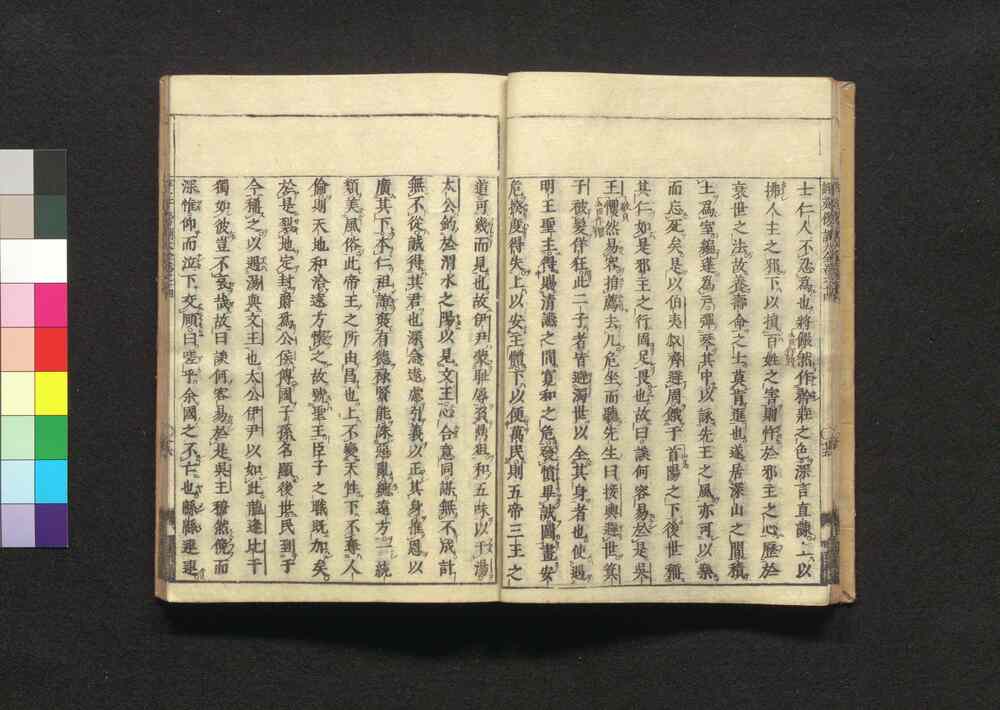 士仁人不忍爲也將儼然作矜莊之色深言直諫上以
拂人主之邪下以損百姓之害則忤於邪主之心歷於
衰世之法故養壽命之士莫肯進也遂居深山之間積
土爲室編蓬爲戸彈琴其中以詠先王之風亦可以樂
而忘死矣是以伯夷叔齊避周餓于首陽之下後世稱
其仁如是邪王之行固足畏也故曰談何容易於是吳
王懼然易容捐薦去几危坐而聽先生曰接輿避世箕
子被髮佯狂此二子者皆避濁世以全其身者也使遇
明王聖主得賜清讌之閒寬和之色發憤畢誠圖畫安
危揆度得失上以安主體下以便萬民則五帝三王之
道可幾而見也故伊尹蒙耻辱負鼎俎和五味以干湯
太公釣於渭水之陽以見文王心合意同謀無不成計
無不從誠得其君也深念遠慮引義以正其身推恩以
廣其下本仁祖誼褒有德祿賢能誅惡亂總遠方一統
類美風俗此帝王之所由昌也上不變天性下不奪人
倫則天地和洽遠方懷之故號聖王臣子之職既加矣
於是裂地定封爵爲公侯傳國子孫名顯後世民到于
今稱之以遇湯與文王也太公伊尹以如此龍逢比干
獨如彼豈不哀哉故曰談何容易於是吳王穆然俛而
深惟仰而泣下交頤曰嗟乎余國之不亡也緜緜連連